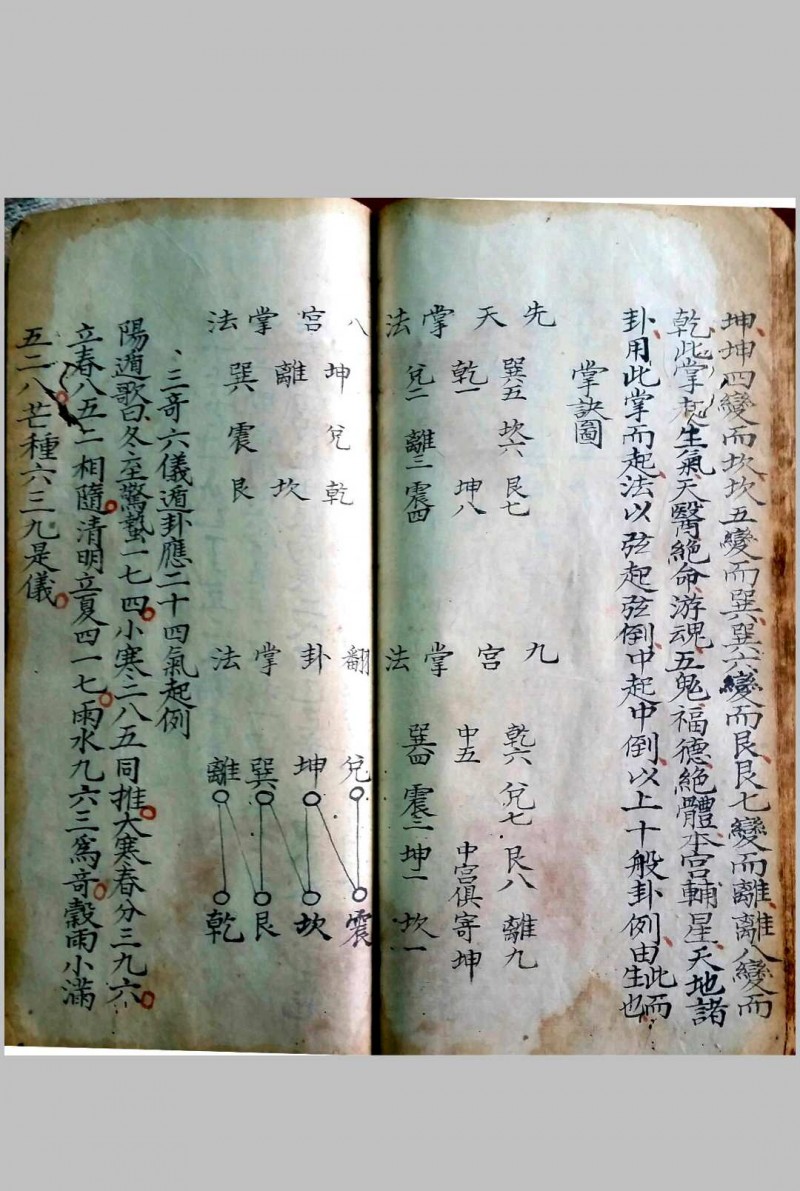 坤坤四變而坎坎五變而巽巽六變而艮艮七變而離離八變而
乾此掌起生氣天醫絶命游魂五鬼福德絶體本宮輔星天地諸
卦用此掌而起法以弦起弦倒中起中倒以上十般卦例由此而
生也
掌訣圖
先天掌法
巽五 坎六 艮七
乾一 坤八
兌二 離三 震四
九宮掌法
乾六 兌七 艮八 離九
中五 中宮俱寄坤
巽四 震三 坤二 坎一
八宮掌法
坤 兌 乾
離 坎
巽 震 艮
翻卦掌法
兌 震
坤 坎
巽 艮
離 乾
三奇六儀遁卦應二十四氣起例
陽遁歌曰冬至驚蟄一七四小寒二八五同推大寒春分三九六
立春八五二相隨清明立夏四一七雨水九六三為奇穀雨小滿
五二八芒種六三九是儀